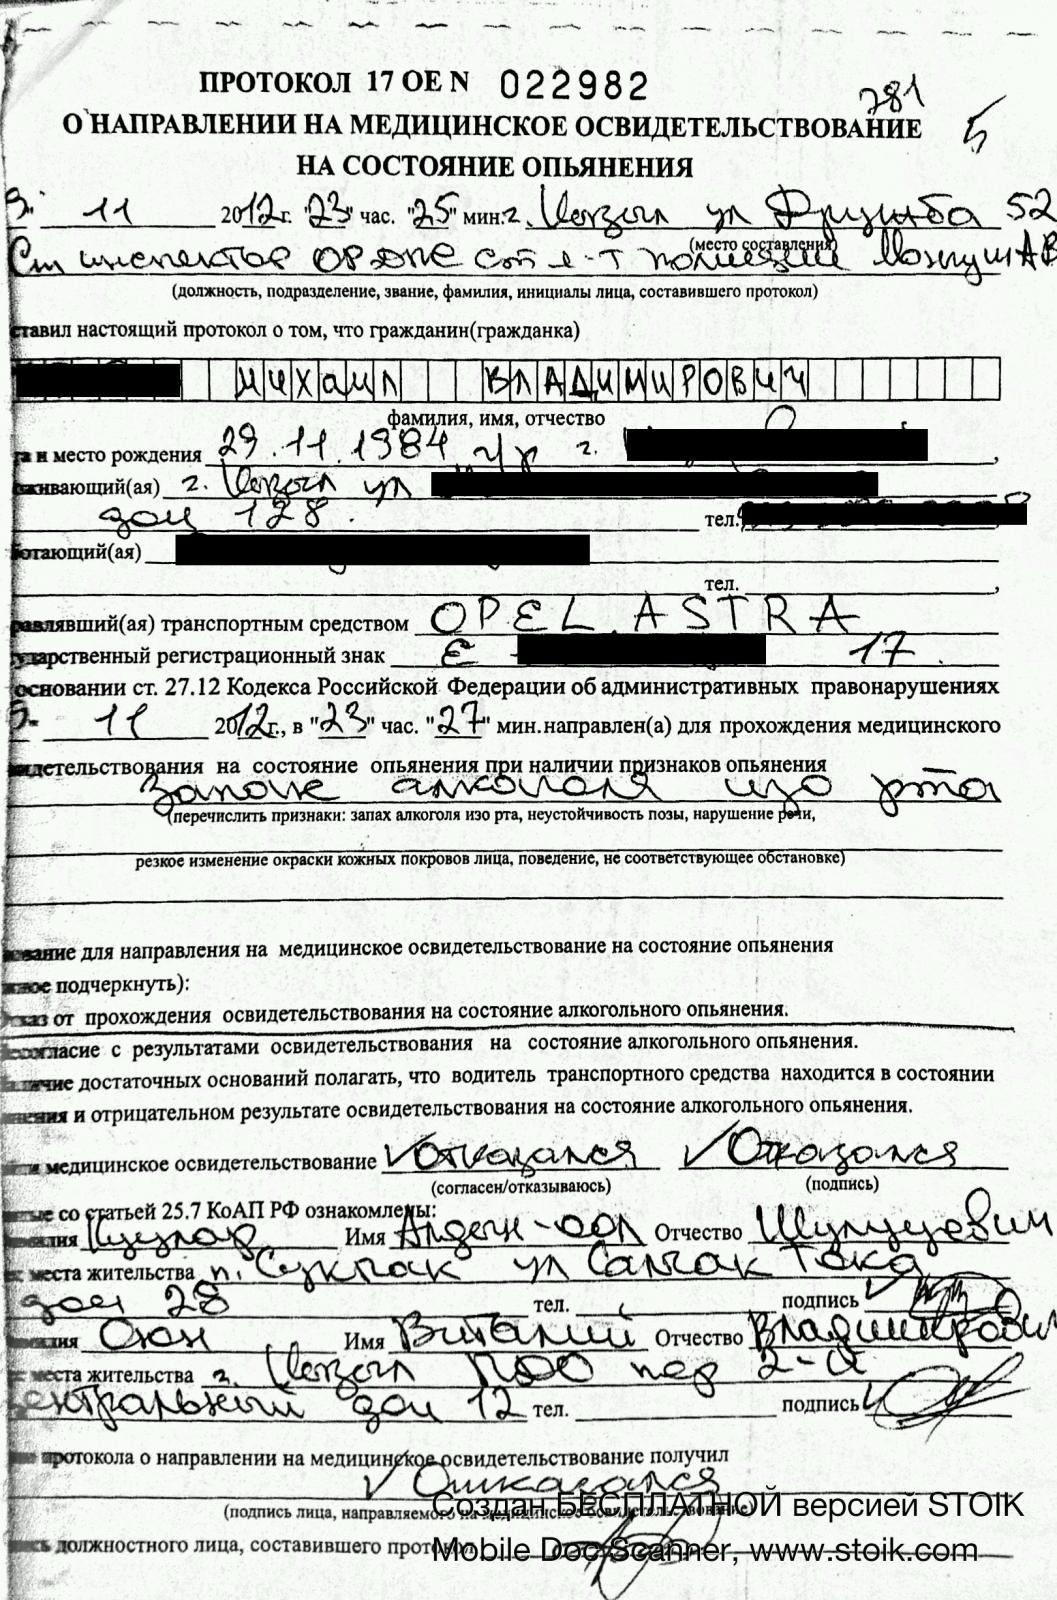 ПРОТОКОЛ 17 ОЕ N 022982
281
О НАПРАВЛЕНИИ НА МЕДИЦИНСКОЕ ОСВИДЕТЕЛЬСТВОВАНИЕ 5
НА СОСТОЯНИЕ ОПЬЯНЕНИЯ
11 2012г. "23" час. "25" мин. г. Кызыл ул Дружба 52
(место составления)
Ст инспектор ОР ДПС ст л-т полиции Монгуш АВ
(должность, подразделение, звание, фамилия, инициалы лица, составившего протокол)
ставил настоящий протокол о том, что гражданин(гражданка)
МИХАИЛ ВЛАДИМИРОВИЧ
фамилия, имя, отчество
и место рождения 29.11.1984 г.
живающий(ая) г. Кызыл ул
дом 128. тел.
ботающий(ая)
тел.
равлявший(ая) транспортным средством OPEL ASTRA
ударственный регистрационный знак Е 17
основании ст. 27.12 Кодекса Российской Федерации об административных правонарушениях
11 2012г., в "23" час. "27" мин.направлен(а) для прохождения медицинского
идетельствования на состояние опьянения при наличии признаков опьянения
Запах алкоголя изо рта
(перечислить признаки: запах алкоголя изо рта, неустойчивость позы, нарушение речи,
резкое изменение окраски кожных покровов лица, поведение, не соответствующее обстановке)
ование для направления на медицинское освидетельствование на состояние опьянения
ное подчеркнуть):
каз от прохождения освидетельствования на состояние алкогольного опьянения.
согласие с результатами освидетельствования на состояние алкогольного опьянения.
личие достаточных оснований полагать, что водитель транспортного средства находится в состоянии
нения и отрицательном результате освидетельствования на состояние алкогольного опьянения.
медицинское освидетельствование Отказался Отказался
(согласен/отказываюсь) (подпись)
со статьей 25.7 КоАП РФ ознакомлены:
Имя Отчество
места жительства п. Сукпак ул Салчак Тока
дом 28 тел. подпись
Оюн Имя Виталий Отчество Владимирович
места жительства г. Кызыл пер 2-й
Центральный дом 12 тел. подпись
протокола о направлении на медицинское освидетельствование получил
Отказался
(подпись лица, направляемого на медицинское освидетельствование)
должностного лица, составившего протокол
Создан БЕСПЛАТНОЙ версией STOIK
Mobile Doc Scanner, www.stoik.com